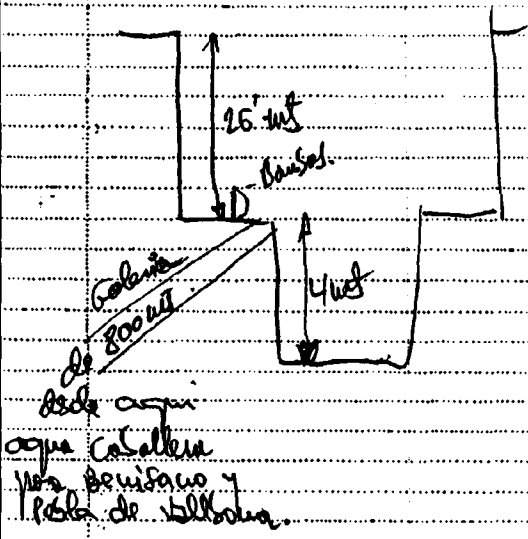 16 mts
D-Bombas.
4 mts
Galeria
de 800 mts
desde aqui
agua Caballera
para Benifano y
Pobla de Vallbona.